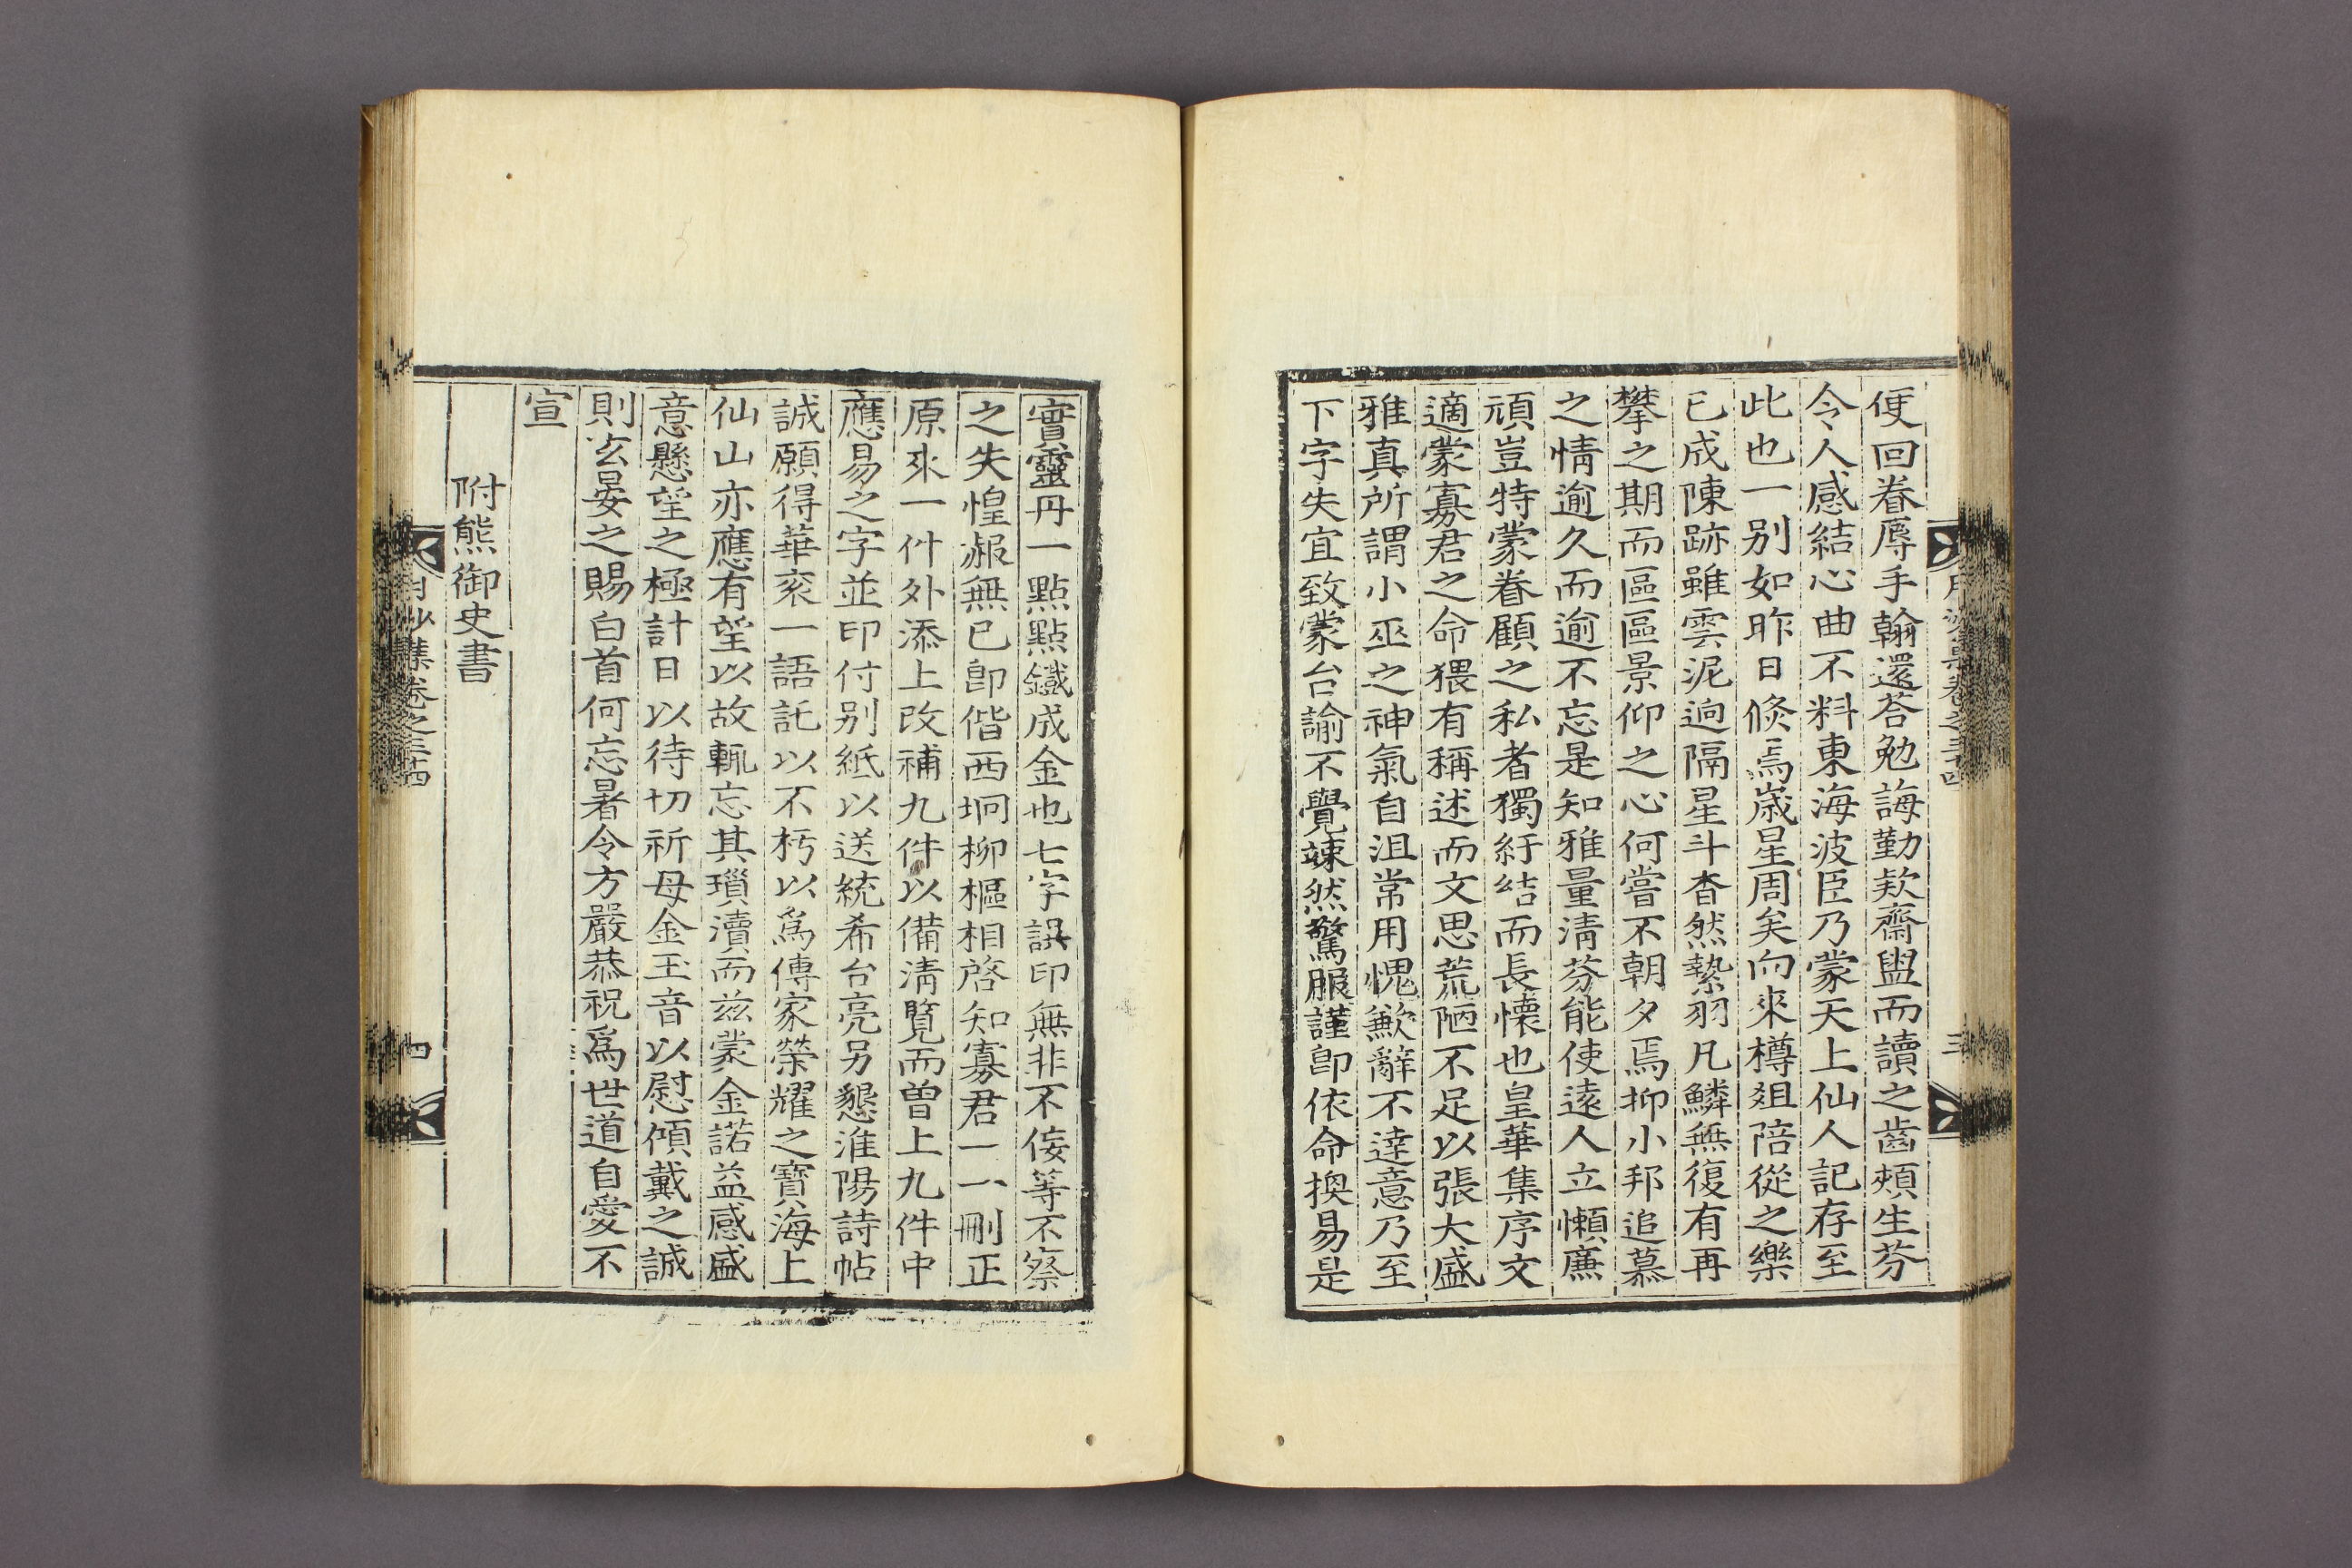 便回眷辱手翰還答勉誨勤欵齋盥而讀之齒頰生芬
令人感結心曲不料東海波臣乃蒙天上仙人記存至
此也一別如昨日倐焉歲星周矣向來樽爼陪從之樂
已成陳跡雖雲泥逈隔星斗杳然縶羽凡鱗無復有再
攀之期而區區景仰之心何嘗不朝夕焉抑小邦追慕
之情逾久而逾不忘是知雅量淸芬能使遠人立懶廉
頑豈特蒙眷顧之私者獨紆結而長懷也皇華集序文
適蒙寡君之命猥有稱述而文思荒陋不足以張大盛
雅真所謂小巫之神氣自沮常用愧歉辭不達意乃至
下字失宜致蒙台諭不覺竦然驚服謹卽依命換易是
實靈丹一點點鐵成金也七字誤印無非不侫等不察
之失惶赧無已卽偕西坰柳樞相啓知寡君一一刪正
原來一件外添上改補九件以備淸覽而曾上九件中
應易之字並印付別紙以送統希台亮另懇淮陽詩帖
誠願得華衮一語託以不朽以爲傳家榮耀之寶海上
仙山亦應有望以故輒忘其瑣瀆而茲蒙金諾益感盛
意懸望之極計日以待切祈母金玉音以慰傾戴之誠
則玄晏之賜白首何忘暑令方嚴恭祝爲世道自愛不
宣
附熊御史書
月沙集卷之三十四
四